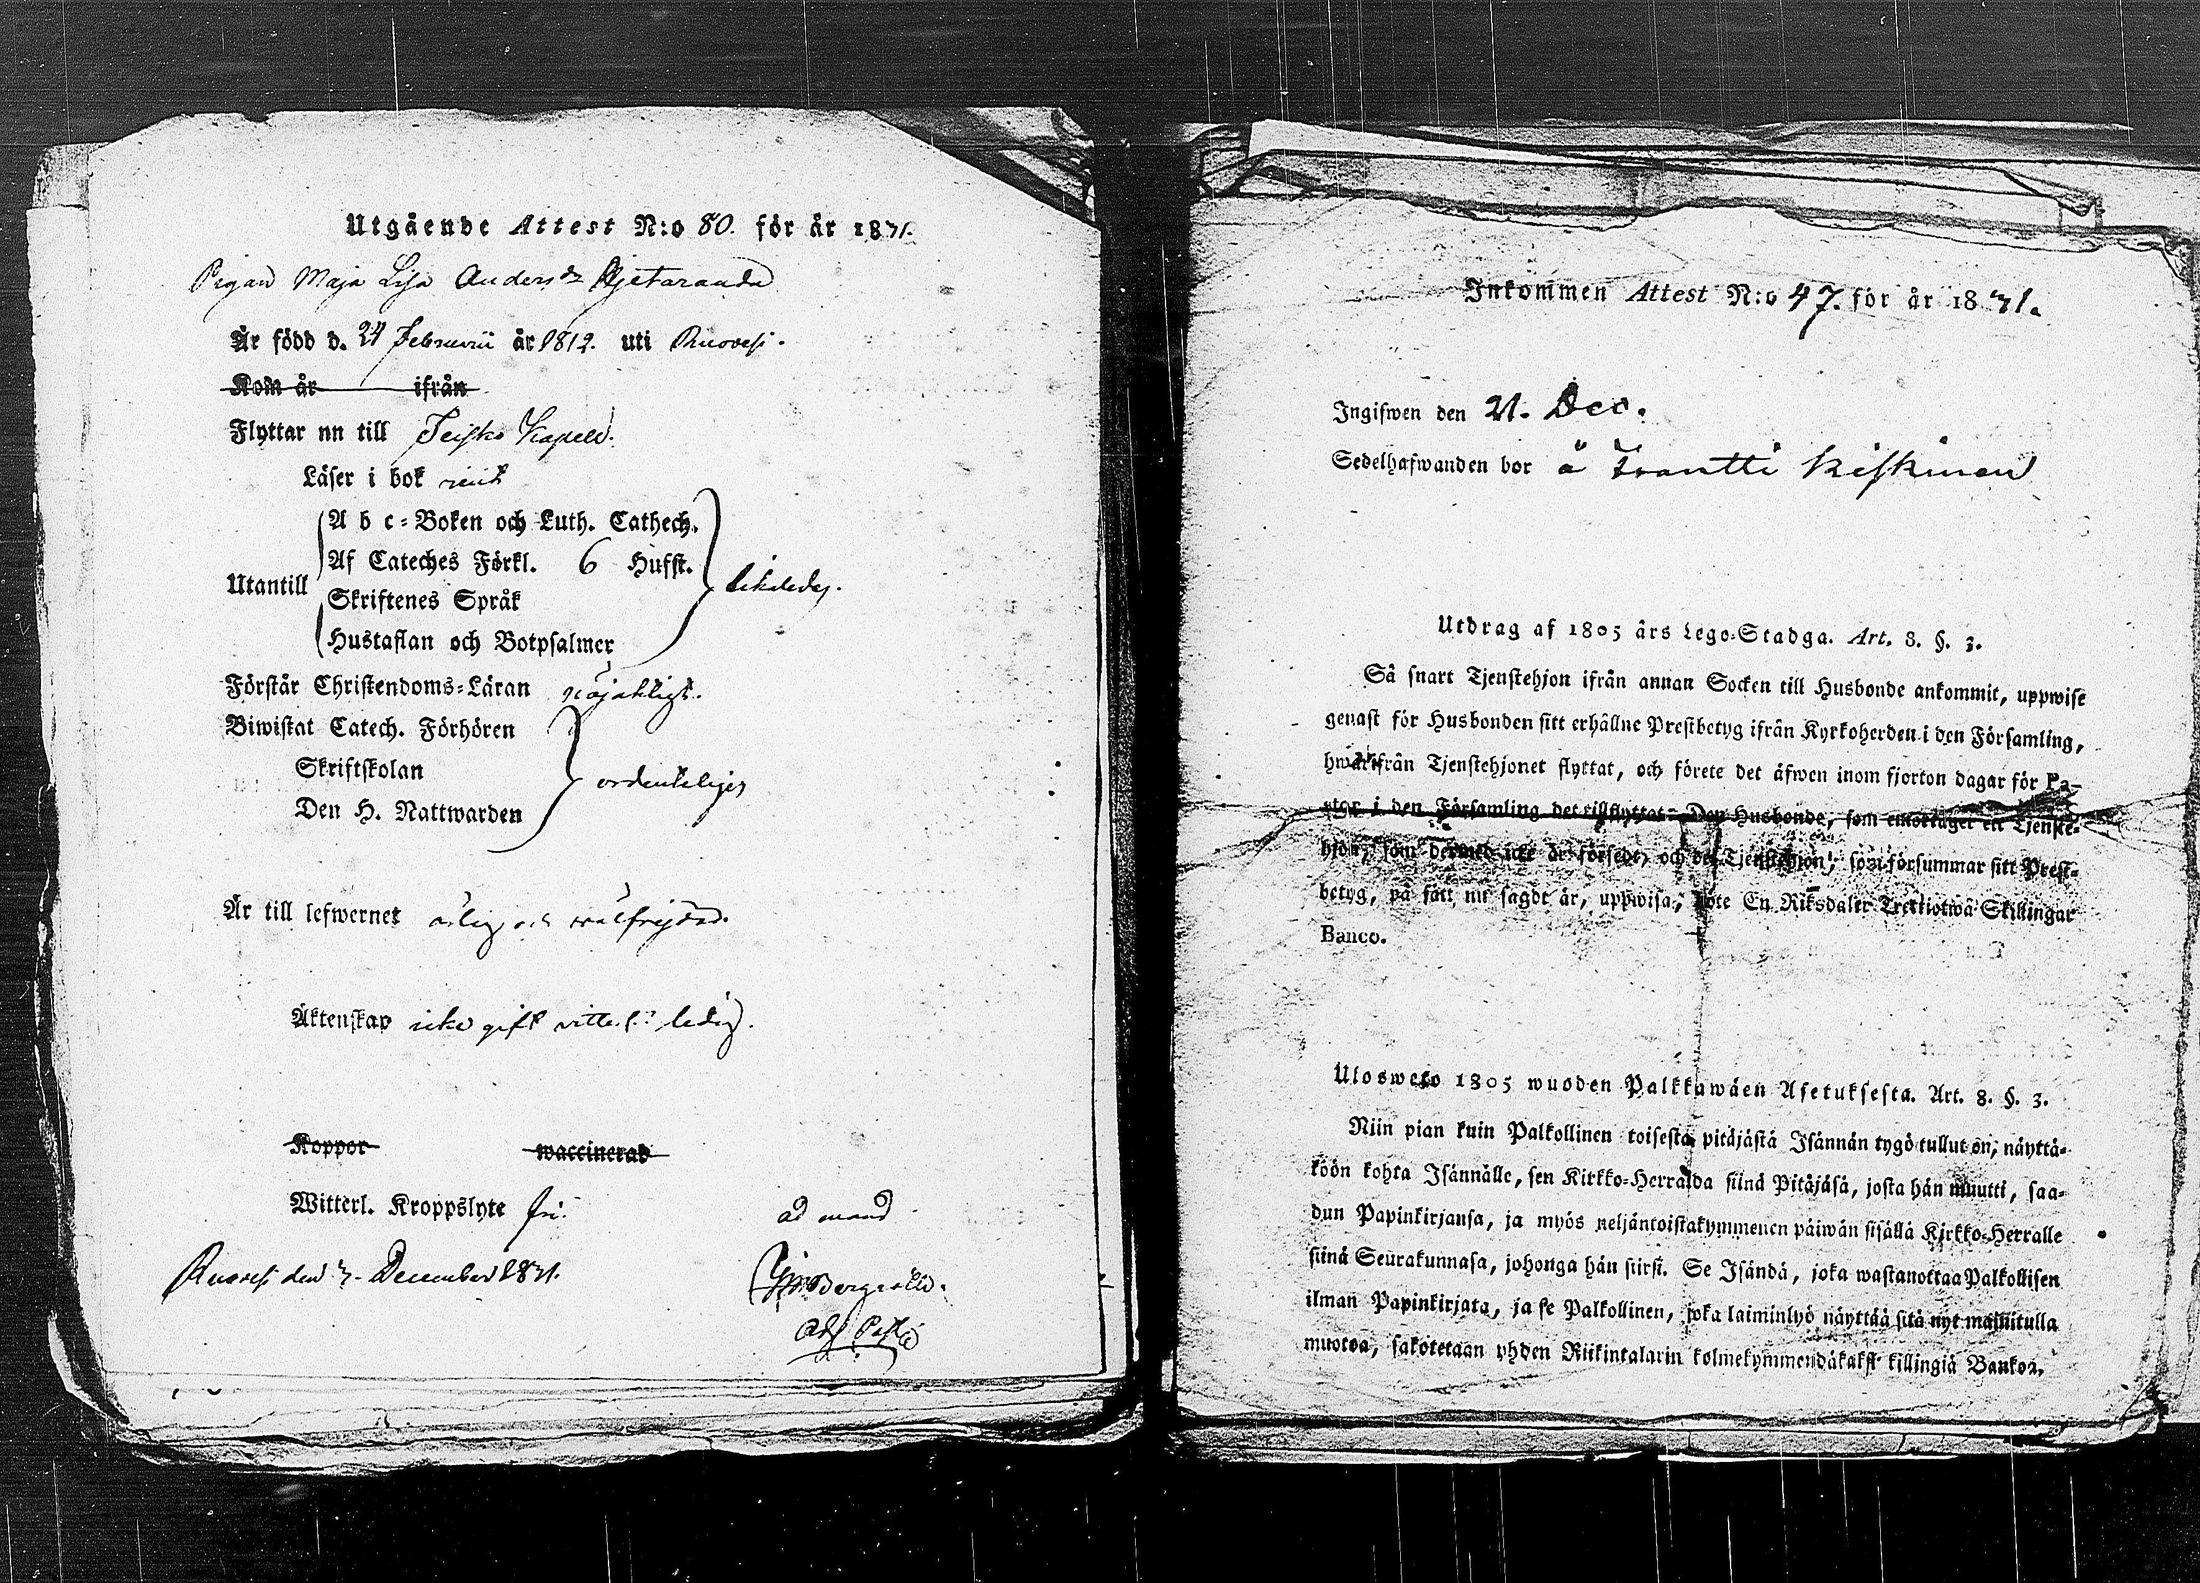 Utgående Attest N:o 80. för år 1831.
Pigan Maja Lisa Andersdr
Är född d. 24 Februarii år 1812. uti Ruovesi.
Kom år ifrån
Flyttar nu till Teisko Kapell.
Läser i bok rent
A b c-Boken och Luth. Cathech.
Af Cateches Förkl. 6 Hufst.
Utantill likaledes.
Skriftenes Språk
Hustaflan och Botpsalmer
Förstår Christendoms-Läran nöjaktligt.
Biwistat Catech. Förhören
Skriftskolan
ordenteligen
Den H. Nattwarden
Är till lefwernet ärlig och wälfrejdad.
Äktenskap icke gift ledig.
Koppor waccinerad
Witterl. Kroppslyte fri.
ad mand
Ruovesi den 7. December 1831.
Adj Past
Inkommen Attest N:o 47. för år 1831.
Ingifwen den 21. Dec.
Sedelhafwanden bor å Frantti Kiskinen
Utdrag af 1805 års Lego-Stadga. Art. 8. §. 3.
Så snart Tjenstehjon ifrån annan Socken till Husbonde ankommit, uppwise
genast för Husbonden sitt erhållne Prestbetyg ifrån Kyrkoherden i den Församling,
hwarifrån Tjenstehjonet flyttat, och förete det äfwen inom fjorton dagar för Pa-
stor i den Församling det tillflyttat. Den Husbonde, som emottager ett Tjenste-
hjon, som dermed icke är försedt, och det Tjenstehjon, som försummar sitt Prest-
betyg, på sätt nu sagdt är, uppwisa, böte En Riksdaler Trettiotwå Skillingar
Banco.
Ulosweto 1805 wuoden Palkkawäen Asetuksesta. Art. 8. §. 3.
Niin pian kuin Palkollinen toisesta pitäjästä Isännän tygö tullut on, näyttä-
köön kohta Isännälle, sen Kirkko-Herralda siinä Pitäjäsä, josta hän muutti, saa-
dun Papinkirjansa, ja myös neljäntoistakymmenen päiwän sisällä Kirkko-Herralle
siinä Seurakunnasa, johonga hän siirsi. Se Isändä, joka wastanottaa Palkollisen
ilman Papinkirjata, ja se Palkollinen, joka laiminlyö näyttää sitä nyt mainitulla
muotoa, sakotetaan yhden Riikintalarin kolmekymmendäkaksi killingiä Bankoa.